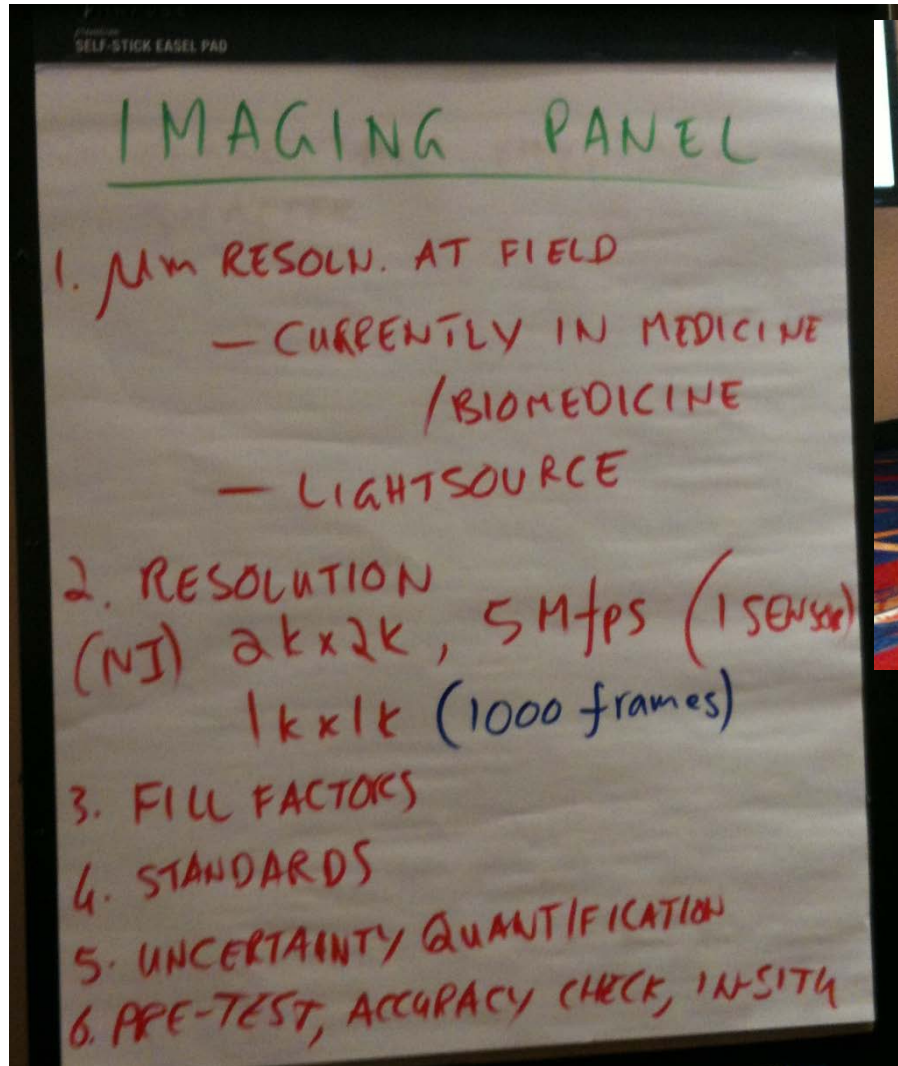 SELF-STICK EASEL PAD
IMAGING PANEL
1. μm RESOLN. AT FIELD
— CURRENTLY IN MEDICINE
/BIOMEDICINE
— LIGHTSOURCE
2. RESOLUTION
(NI) 2k x 2k, 5 Mfps (1 SENSOR)
1k x 1k (1000 frames)
3. FILL FACTORS
4. STANDARDS
5. UNCERTAINTY QUANTIFICATION
6. PRE-TEST, ACCURACY CHECK, IN-SITU